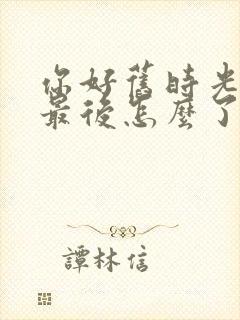 你好舊時光
最後怎麼了
譚林信